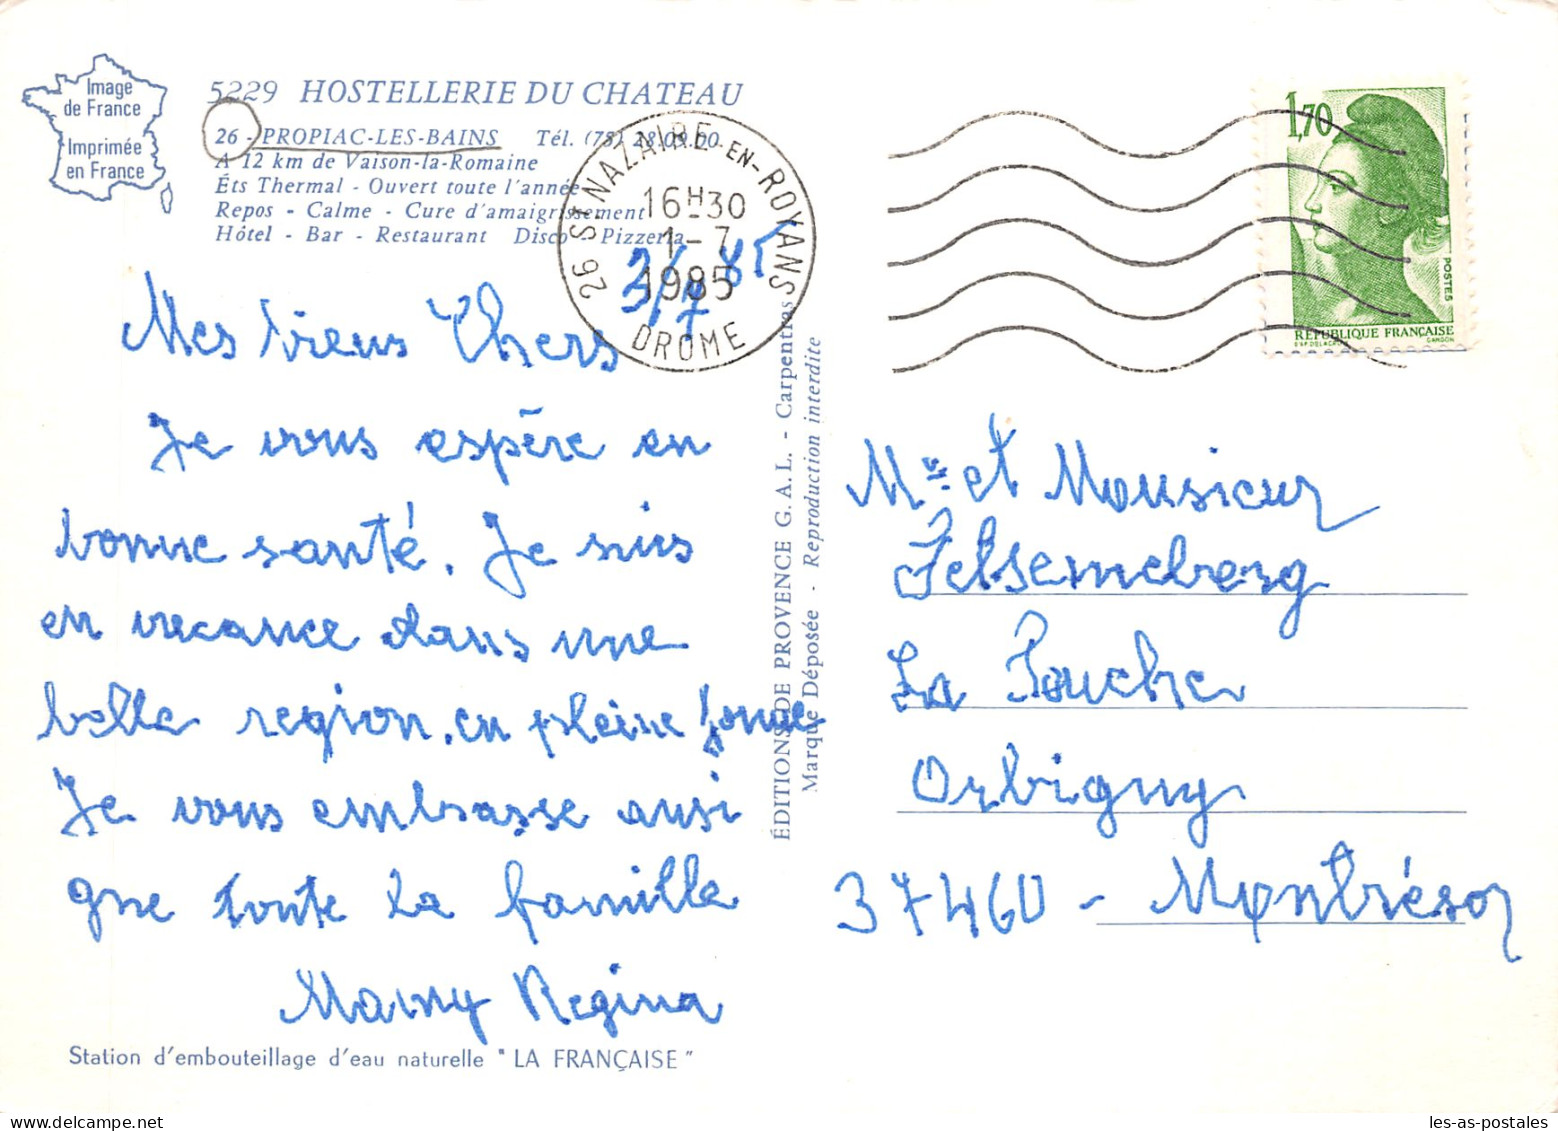 Image
de France
Imprimée
en France
5229 HOSTELLERIE DU CHATEAU
26 - PROPIAC-LES-BAINS Tél. (75) 28.09.00
A 12 km de Vaison-la-Romaine
Éts Thermal - Ouvert toute l'année
Repos - Calme - Cure d'amaigrissement
Hôtel - Bar - Restaurant Disco - Pizzeria
26 ST NAZAIRE-EN-ROYANS
16H30
1-7
1985
DROME
1,70
POSTES
RÉPUBLIQUE FRANÇAISE
D'AP. DELACROIX GANDON
Mes biens Chers
Je vous espère en
bonne santé. Je suis
en vacance dans une
belle region. en pleine
Je vous embrasse ausi
que toute la famille
Mamy Regina
ÉDITIONS DE PROVENCE G.A.L. - Carpentras
Marque Déposée - Reproduction interdite
Mme et Monsieur
Felsemeberg
La
Orbigny
37460 - Montrésor
Station d'embouteillage d'eau naturelle "LA FRANÇAISE"
les-as-postales